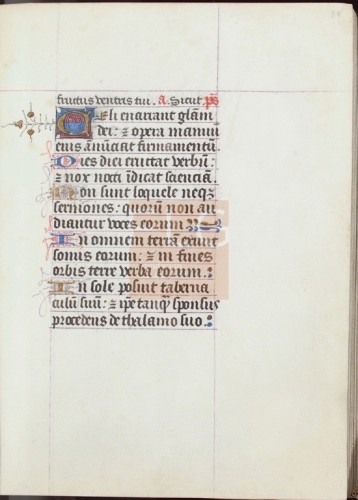 fructus ventris tui. A. Sicut. ps
Celi enarrant glam
dei: ⁊ opera manuu
eius anūciat firmamentū.
Dies diei eructat verbū:
⁊ nox nocti īdicat sciencā.
Non sunt loquele neqȝ
sermones: quorū non au
diantur voces eorum
In omnem terrā exivit
sonus eorum: ⁊ in fines
orbis terre verba eorum.
In sole posuit taberna
culū suū: ⁊ ip̄e tanqȝ sponsus
procedens de thalamo suo